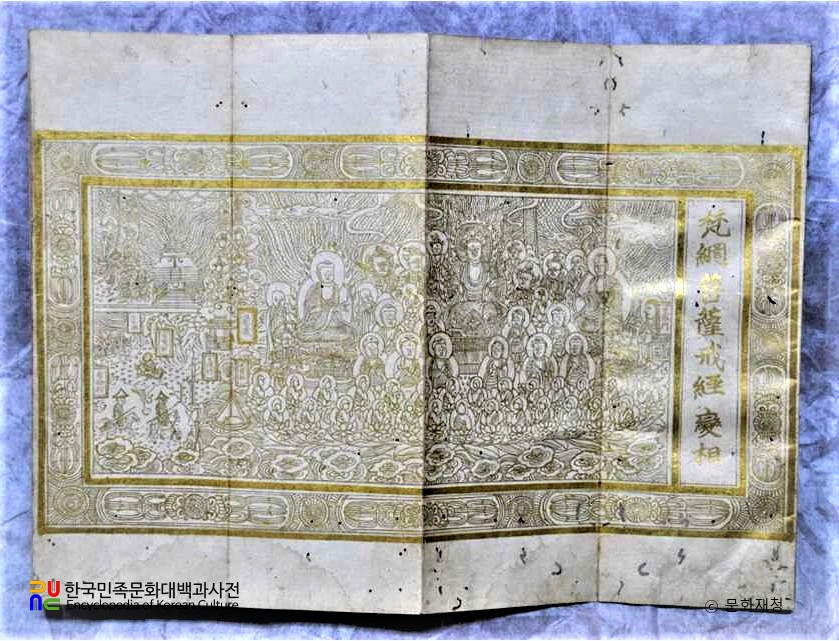 梵網菩薩戒經變相
한국민족문화대백과사전
Encyclopedia of Korean Culture
© 문화재청